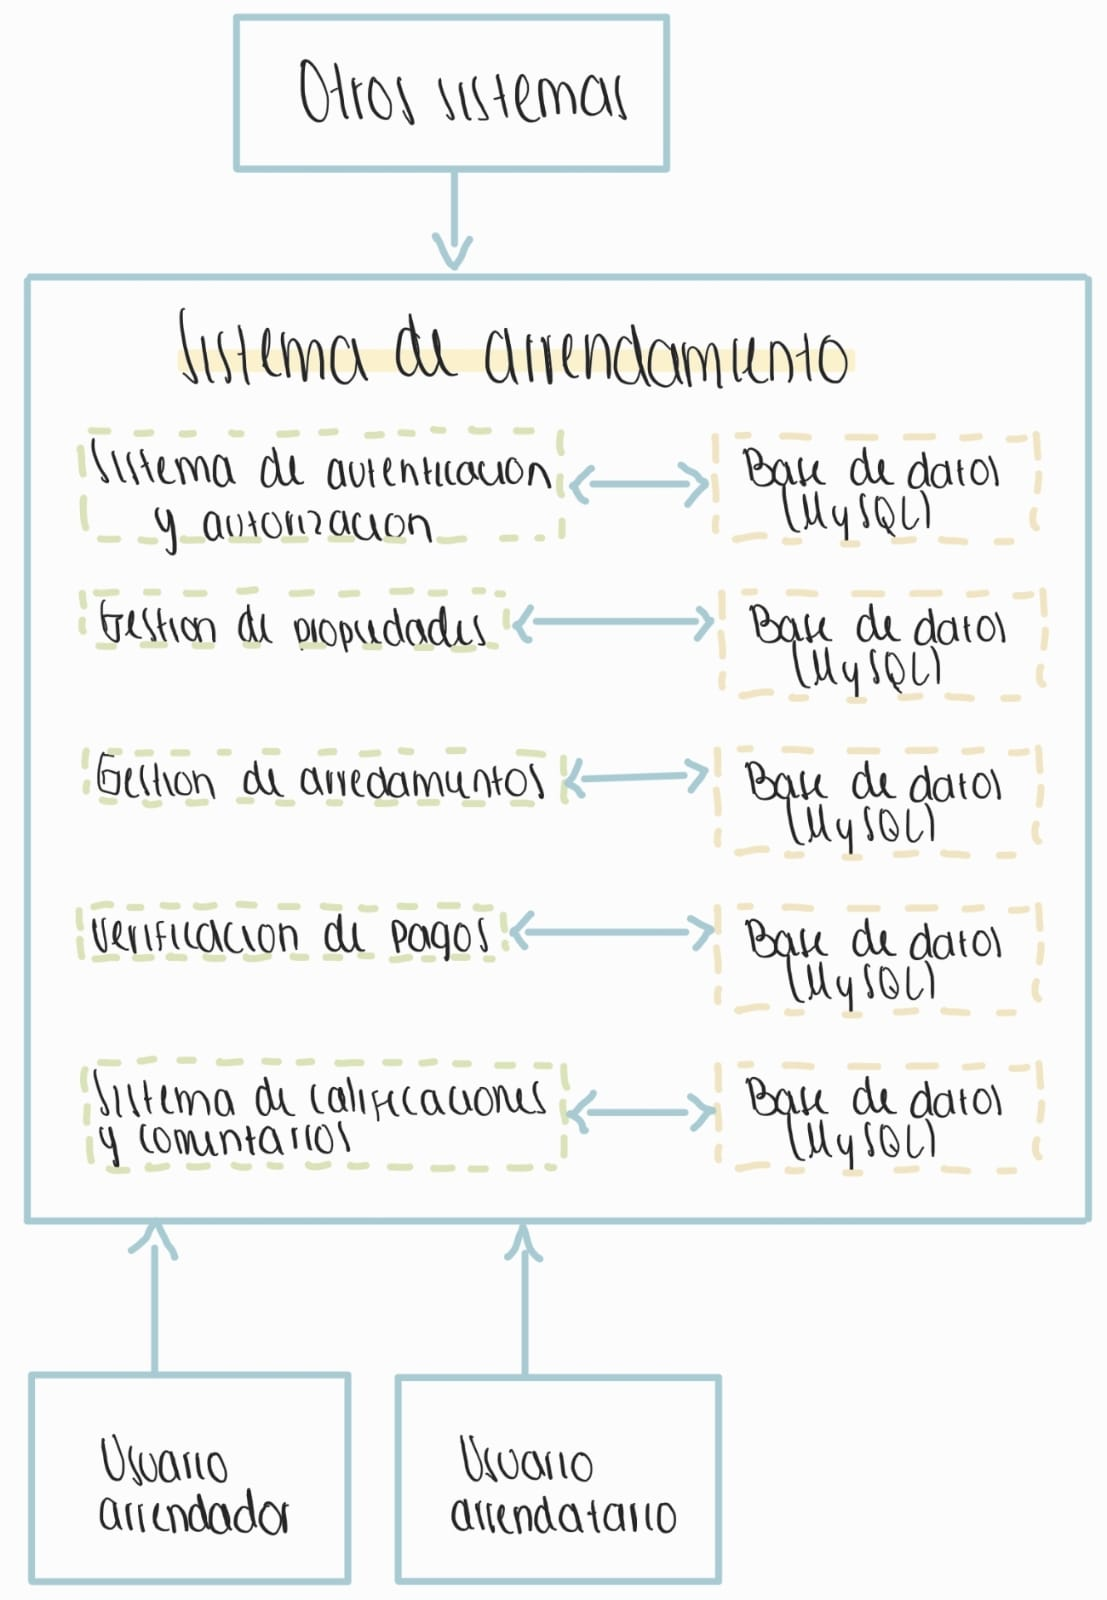 Otros sistemas
Sistema de arrendamiento
Sistema de autenticacion
y autorizacion
Base de datos
(MySQL)
Gestion de propiedades
Base de datos
(MySQL)
Gestion de arredamientos
Base de datos
(MySQL)
Verificacion de pagos
Base de datos
(MySQL)
Sistema de calificaciones
y comentarios
Base de datos
(MySQL)
Usuario
arrendador
Usuario
arrendatario